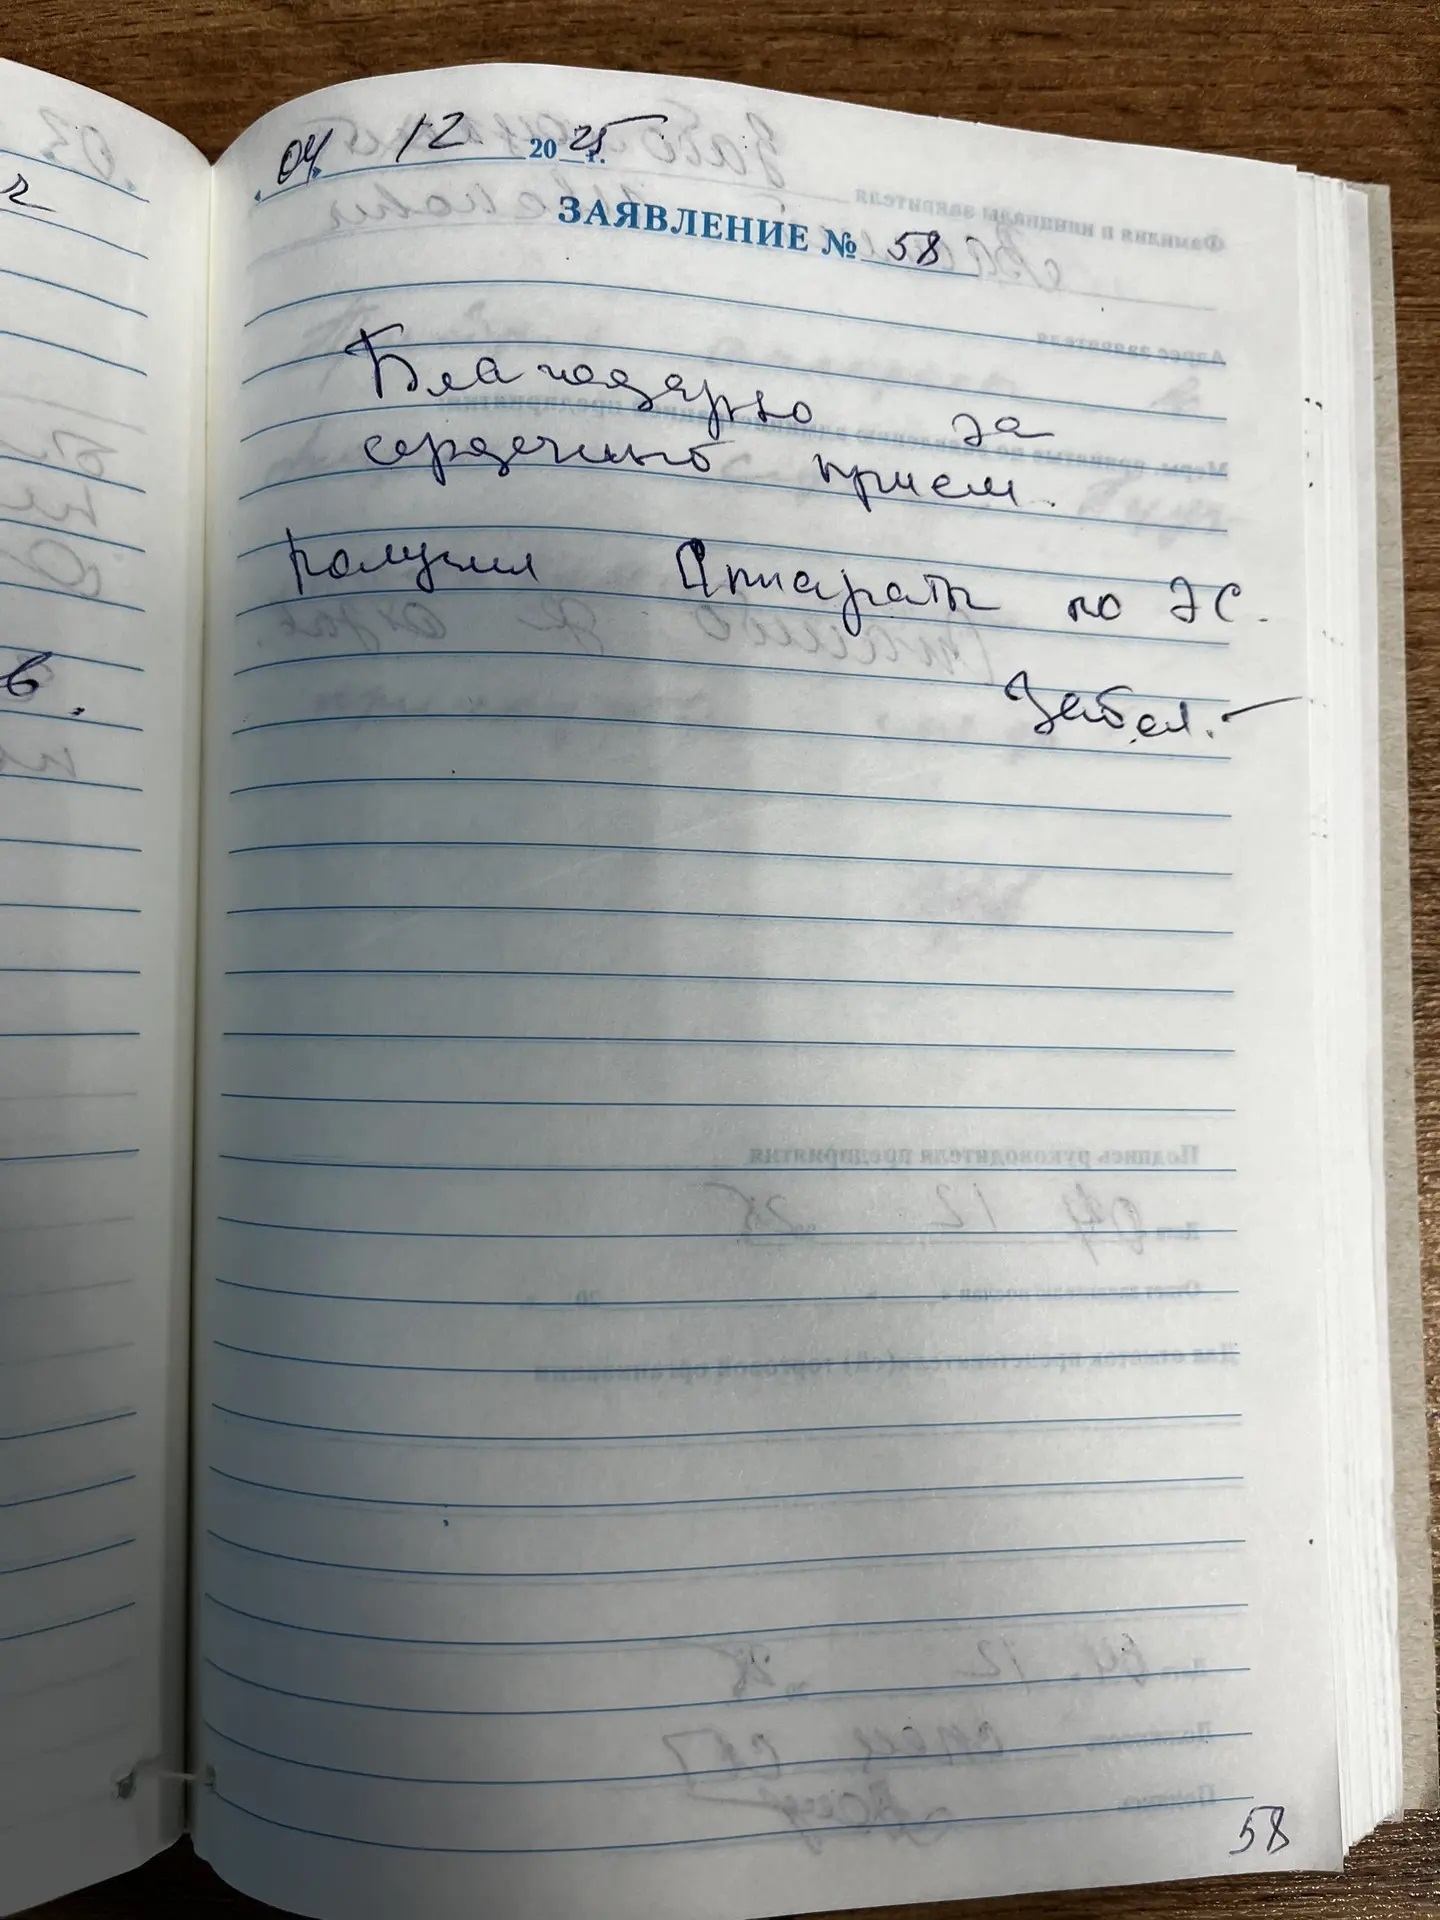 "04" 12 2025 г.
ЗАЯВЛЕНИЕ № 58
Благодарю за
сердечный прием.
получил Аппараты по ЭС.
58